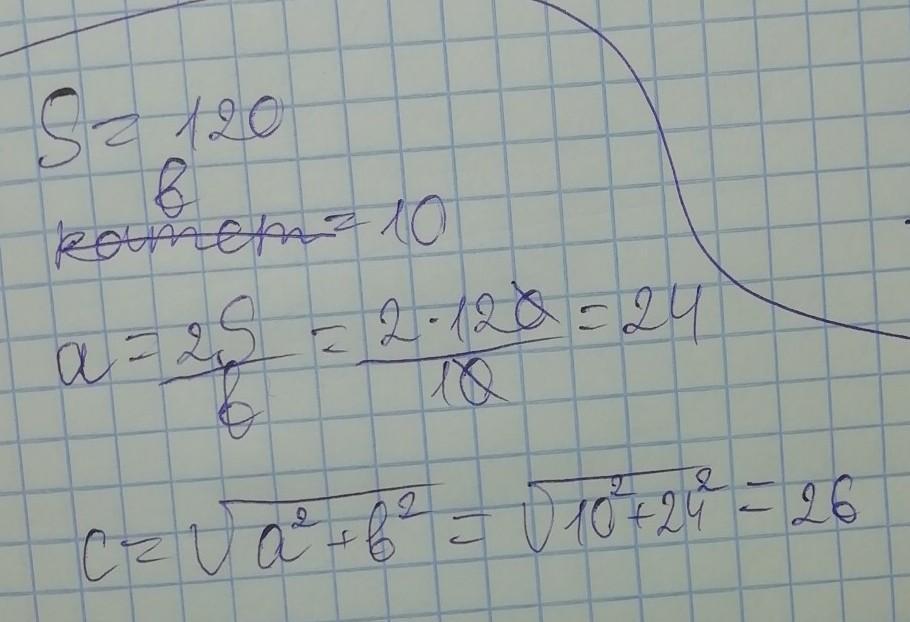 S = 120
в
катет = 10
a = 2S/в = 2·120/10 = 24
c = √a²+в² = √10²+24² = 26